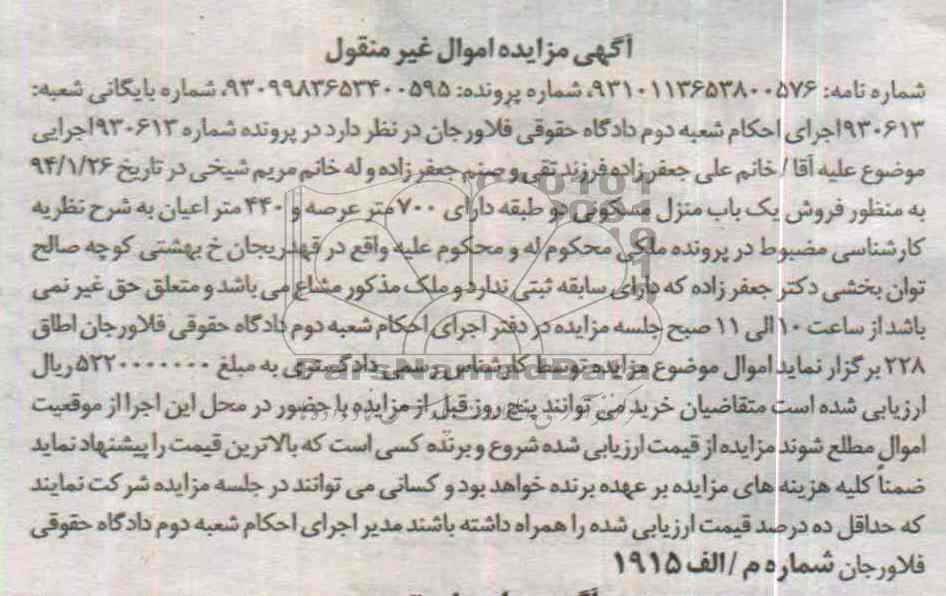 آگهی مزایده اموال غیر منقول
شماره نامه: ۹۳۱۰۱۱۳۶۵۳۸۰۰۵۷۶، شماره پرونده: ۹۳۰۹۹۸۳۶۵۳۴۰۰۵۹۵، شماره بایگانی شعبه:
۹۳۰۶۱۳اجرای احکام شعبه دوم دادگاه حقوقی فلاورجان در نظر دارد در پرونده شماره ۹۳۰۶۱۳اجرایی
موضوع علیه آقا / خانم علی جعفرزاده فرزند تقی و صنم جعفرزاده و له خانم مریم شیخی در تاریخ ۹۴/۱/۲۶
به منظور فروش یک باب منزل مسکونی دو طبقه دارای ۷۰۰ متر عرصه و ۴۴۰ متر اعیان به شرح نظریه
کارشناسی مضبوط در پرونده ملکی محکوم له و محکوم علیه واقع در قهدریجان خ بهشتی کوچه صالح
توان بخشی دکتر جعفرزاده که دارای سابقه ثبتی ندارد و ملک مذکور مشاع می باشد و متعلق حق غیر نمی
باشد از ساعت ۱۰ الی ۱۱ صبح جلسه مزایده در دفتر اجرای احکام شعبه دوم دادگاه حقوقی فلاورجان اطاق
۲۲۸ برگزار نماید اموال موضوع مزایده توسط کارشناس رسمی دادگستری به مبلغ ۵۲۲۰۰۰۰۰۰۰ ریال
ارزیابی شده است متقاضیان خرید می توانند پنج روز قبل از مزایده با حضور در محل این اجرا از موقعیت
اموال مطلع شوند مزایده از قیمت ارزیابی شده شروع و برنده کسی است که بالاترین قیمت را پیشنهاد نماید
ضمناً کلیه هزینه های مزایده بر عهده برنده خواهد بود و کسانی می توانند در جلسه مزایده شرکت نمایند
که حداقل ده درصد قیمت ارزیابی شده را همراه داشته باشند مدیر اجرای احکام شعبه دوم دادگاه حقوقی
فلاورجان شماره م / الف ۱۹۱۵
ParsNamadData